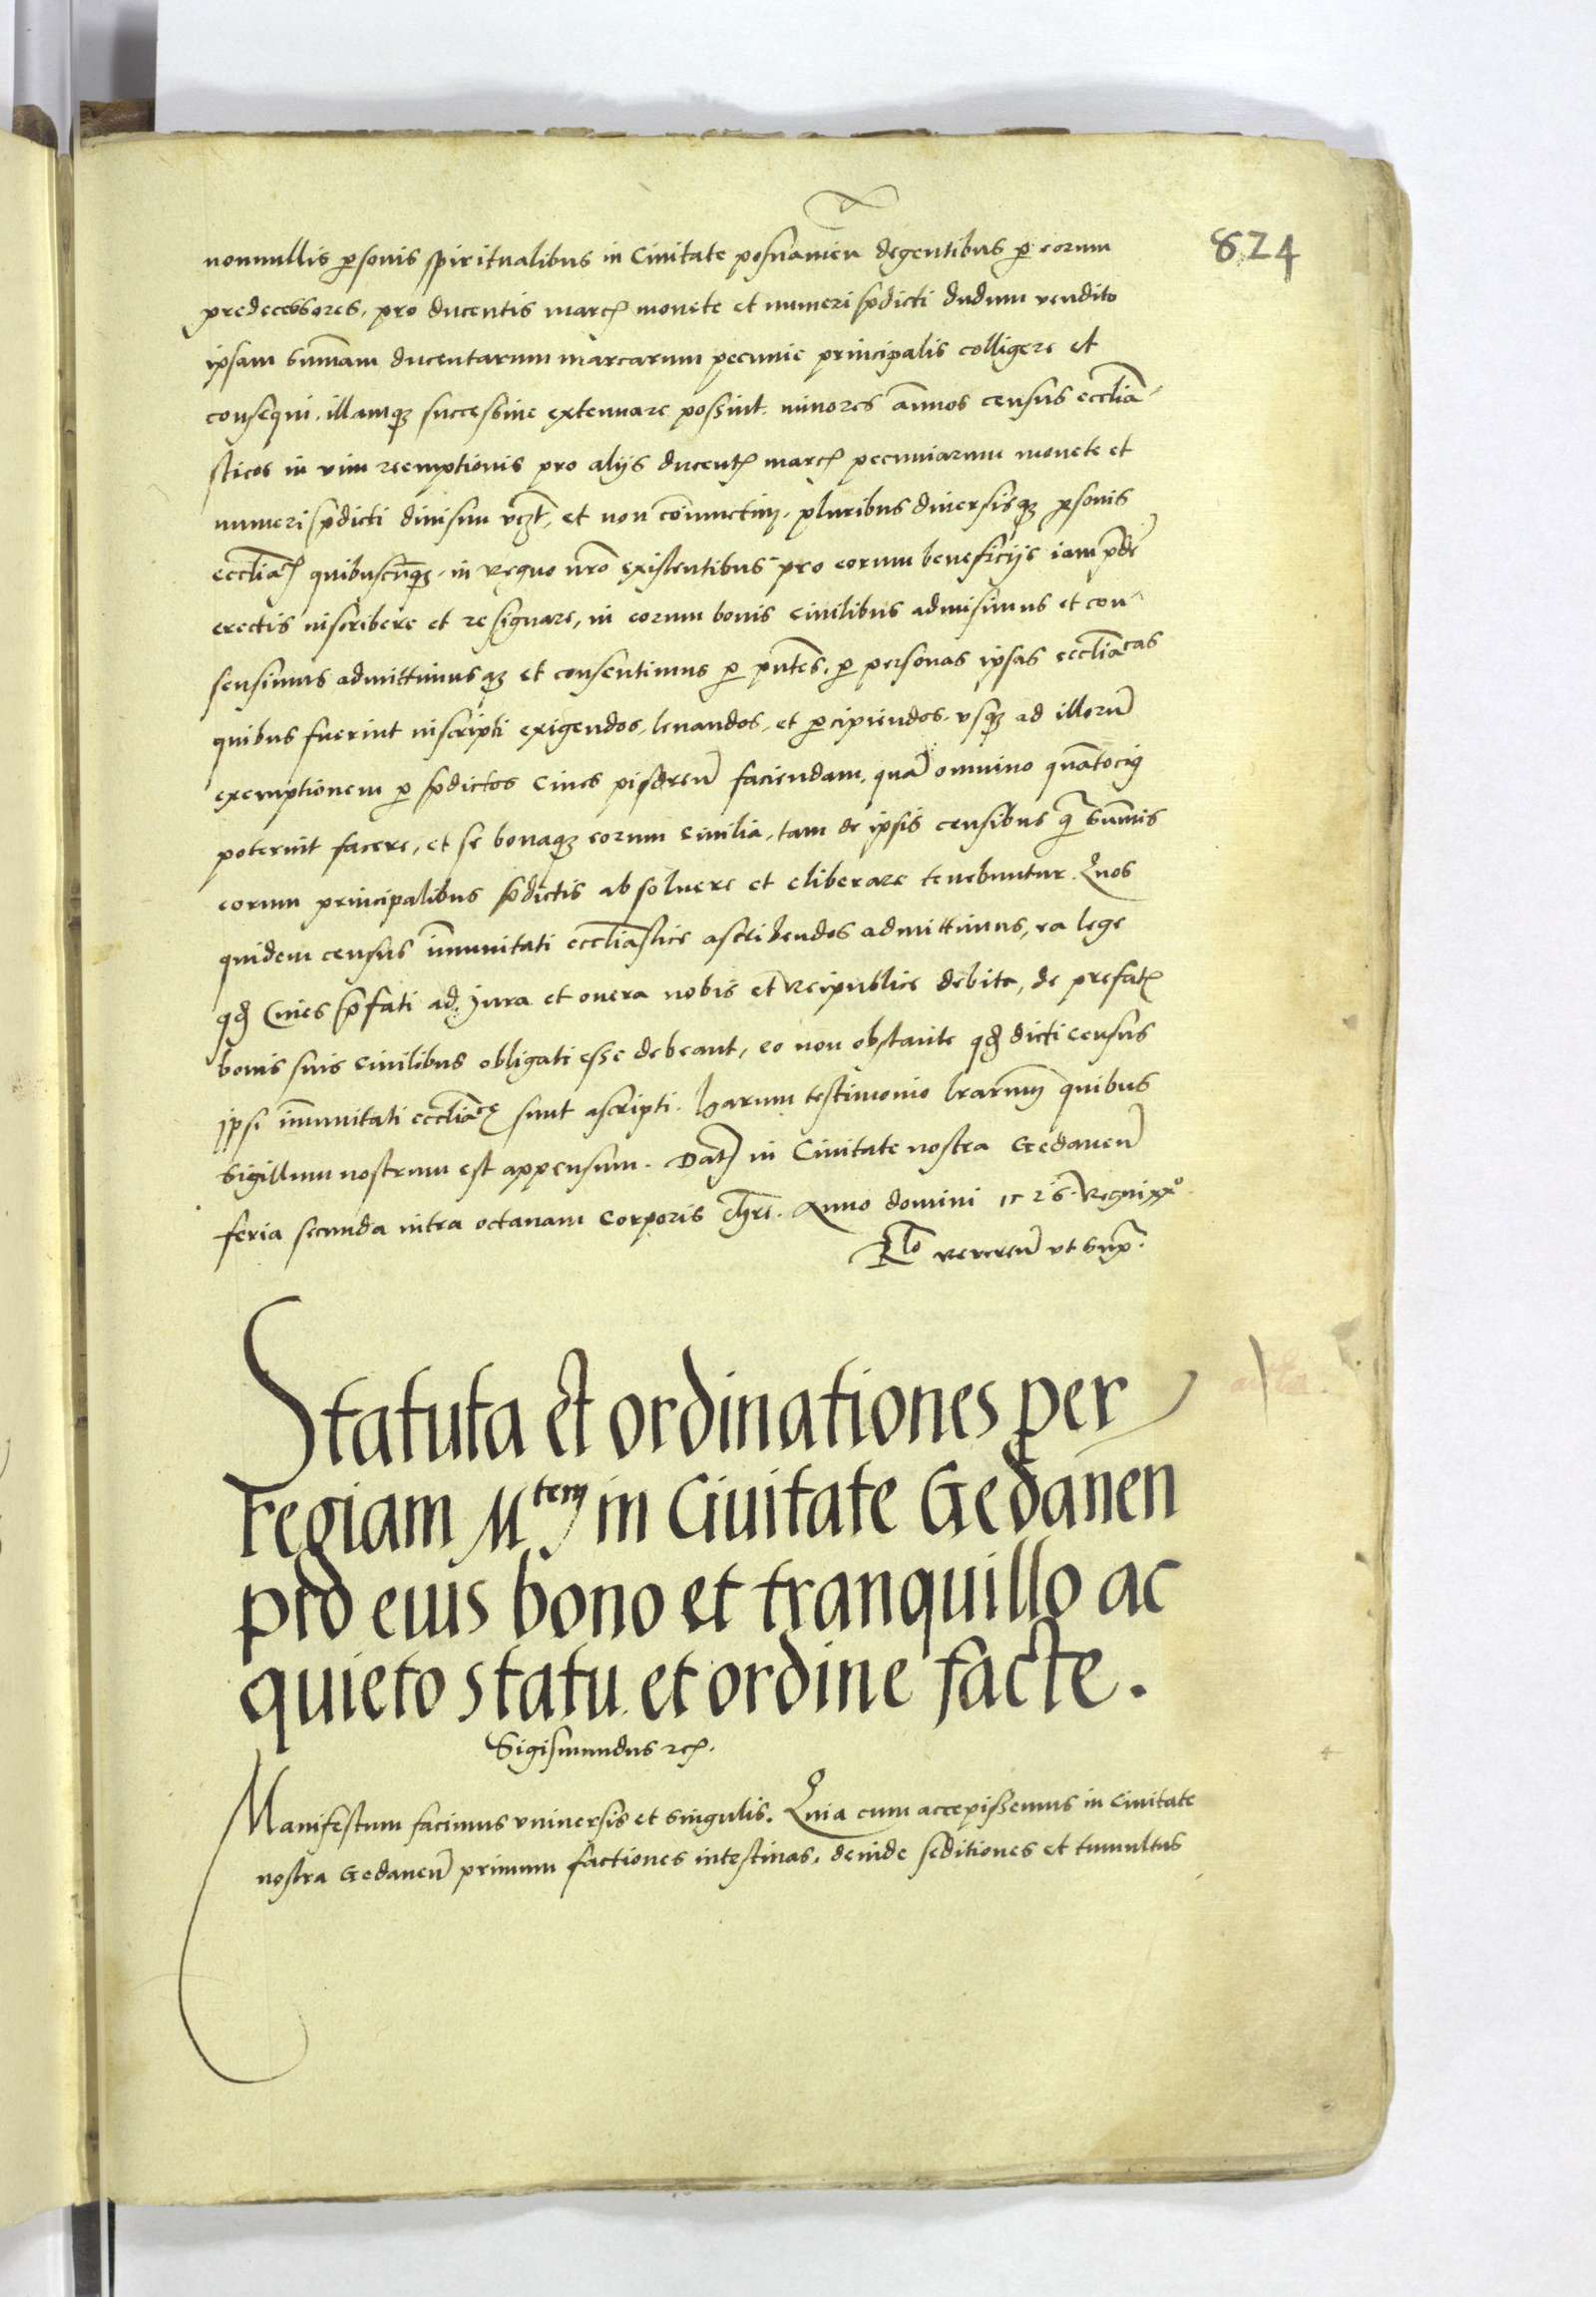 824
nonnullis personis spiritualibus in Ciuitate posnanien degentibus per eorum
predecessores, pro ducentis marcis monete et numeri predicti dudum vendito
ipsam summam ducentarum marcarum pecunie principalis colligere et
consequi, illamque successiue extenuare possint. minores annuos census ecclia-
sticos in vim reemptionis pro alijs ducentis marcis pecuniarum monete et
numeri predicti diuisim vczt, et non coniunctim, pluribus diuersisque personis
eccliacis quibuscunque, in Regno nro existentibus pro eorum beneficijs iam
erectis inscribere et resignare, in eorum bonis Ciuilibus admisimus et con-
sensimus admittimusque et consentimus per pntes, per personas ipsas eccliacas
quibus fuerint inscripti exigendos, leuandos, et percipiendos, vsque ad illorum
exemptionem per predictos Ciues faciendam, quam omnino quantocius
poterint facere, et se bonaque eorum Ciuilia, tam de ipsis censibus quam summis
eorum principalibus predictis absoluere et eliberare tenebuntur. Quos
quidem census immunitati eccliastice ascribendos admittimus, ea lege
quod Ciues prefati ad Jura et onera nobis et Reipublice debita, de prefatis
bonis suis Ciuilibus obligati esse debeant, eo non obstante quod dicti census
ipsi immunitati eccliace sunt ascripti. Harum testimonio lrarum quibus
Sigillum nostrum est appensum. Dat in Ciuitate nostra Gedanen
feria secunda intra octauam Corporis Chri. Anno domini 1526. Regni xxo
Rlo reueren vt supra.
Statuta et ordinationes per
regiam Mtem in Ciuitate Gedanen
pro eius bono et tranquillo ac
quieto statu et ordine facte.
Sigismundus rc.
Manifestum facimus vniuersis et singulis. Quia cum accepissemus in Ciuitate
nostra Gedanen primum factiones intestinas, deinde seditiones et tumultus